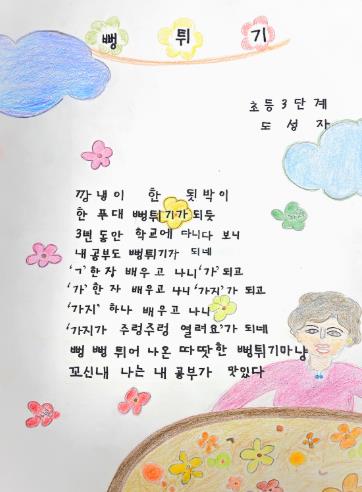 뻥 튀 기
초등 3 단계
도 성 자
깡냉이 한 됫박이
한 푸대 뻥튀기가 되듯
3변 동안 학교에 다니다 보니
내 공부도 뻥튀기가 되네
'ㄱ' 한 자 배우고 나니 '가' 되고
'가' 한 자 배우고 나니 '가지'가 되고
'가지' 하나 배우고 나니
'가지가 주렁주렁 열려요'가 되네
뻥 뻥 튀어 나온 따땃한 뻥튀기마냥
꼬신내 나는 내 공부가 맛있다